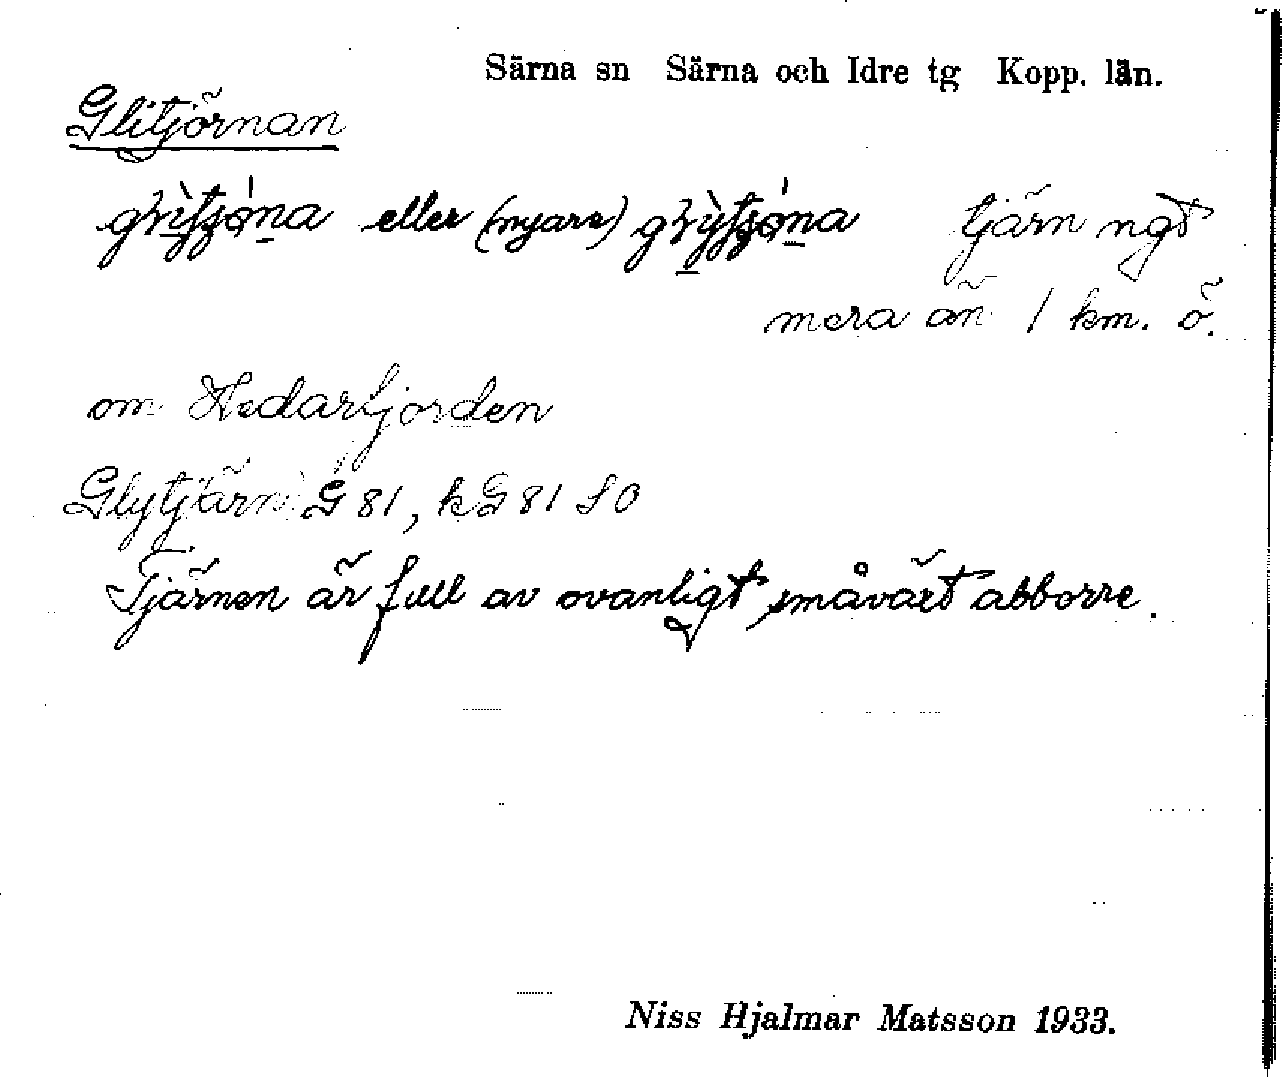 Särna sn Särna och Idre tg Kopp. län.
Glitjörnan
eller (nyare) tjärn ngt
mera än 1 km. ö.
om Hedarfjorden
Glytjärn G 81, kG 81 SO
Tjärnen är full av ovanligt småvärt abborre.
Niss Hjalmar Matsson 1933.